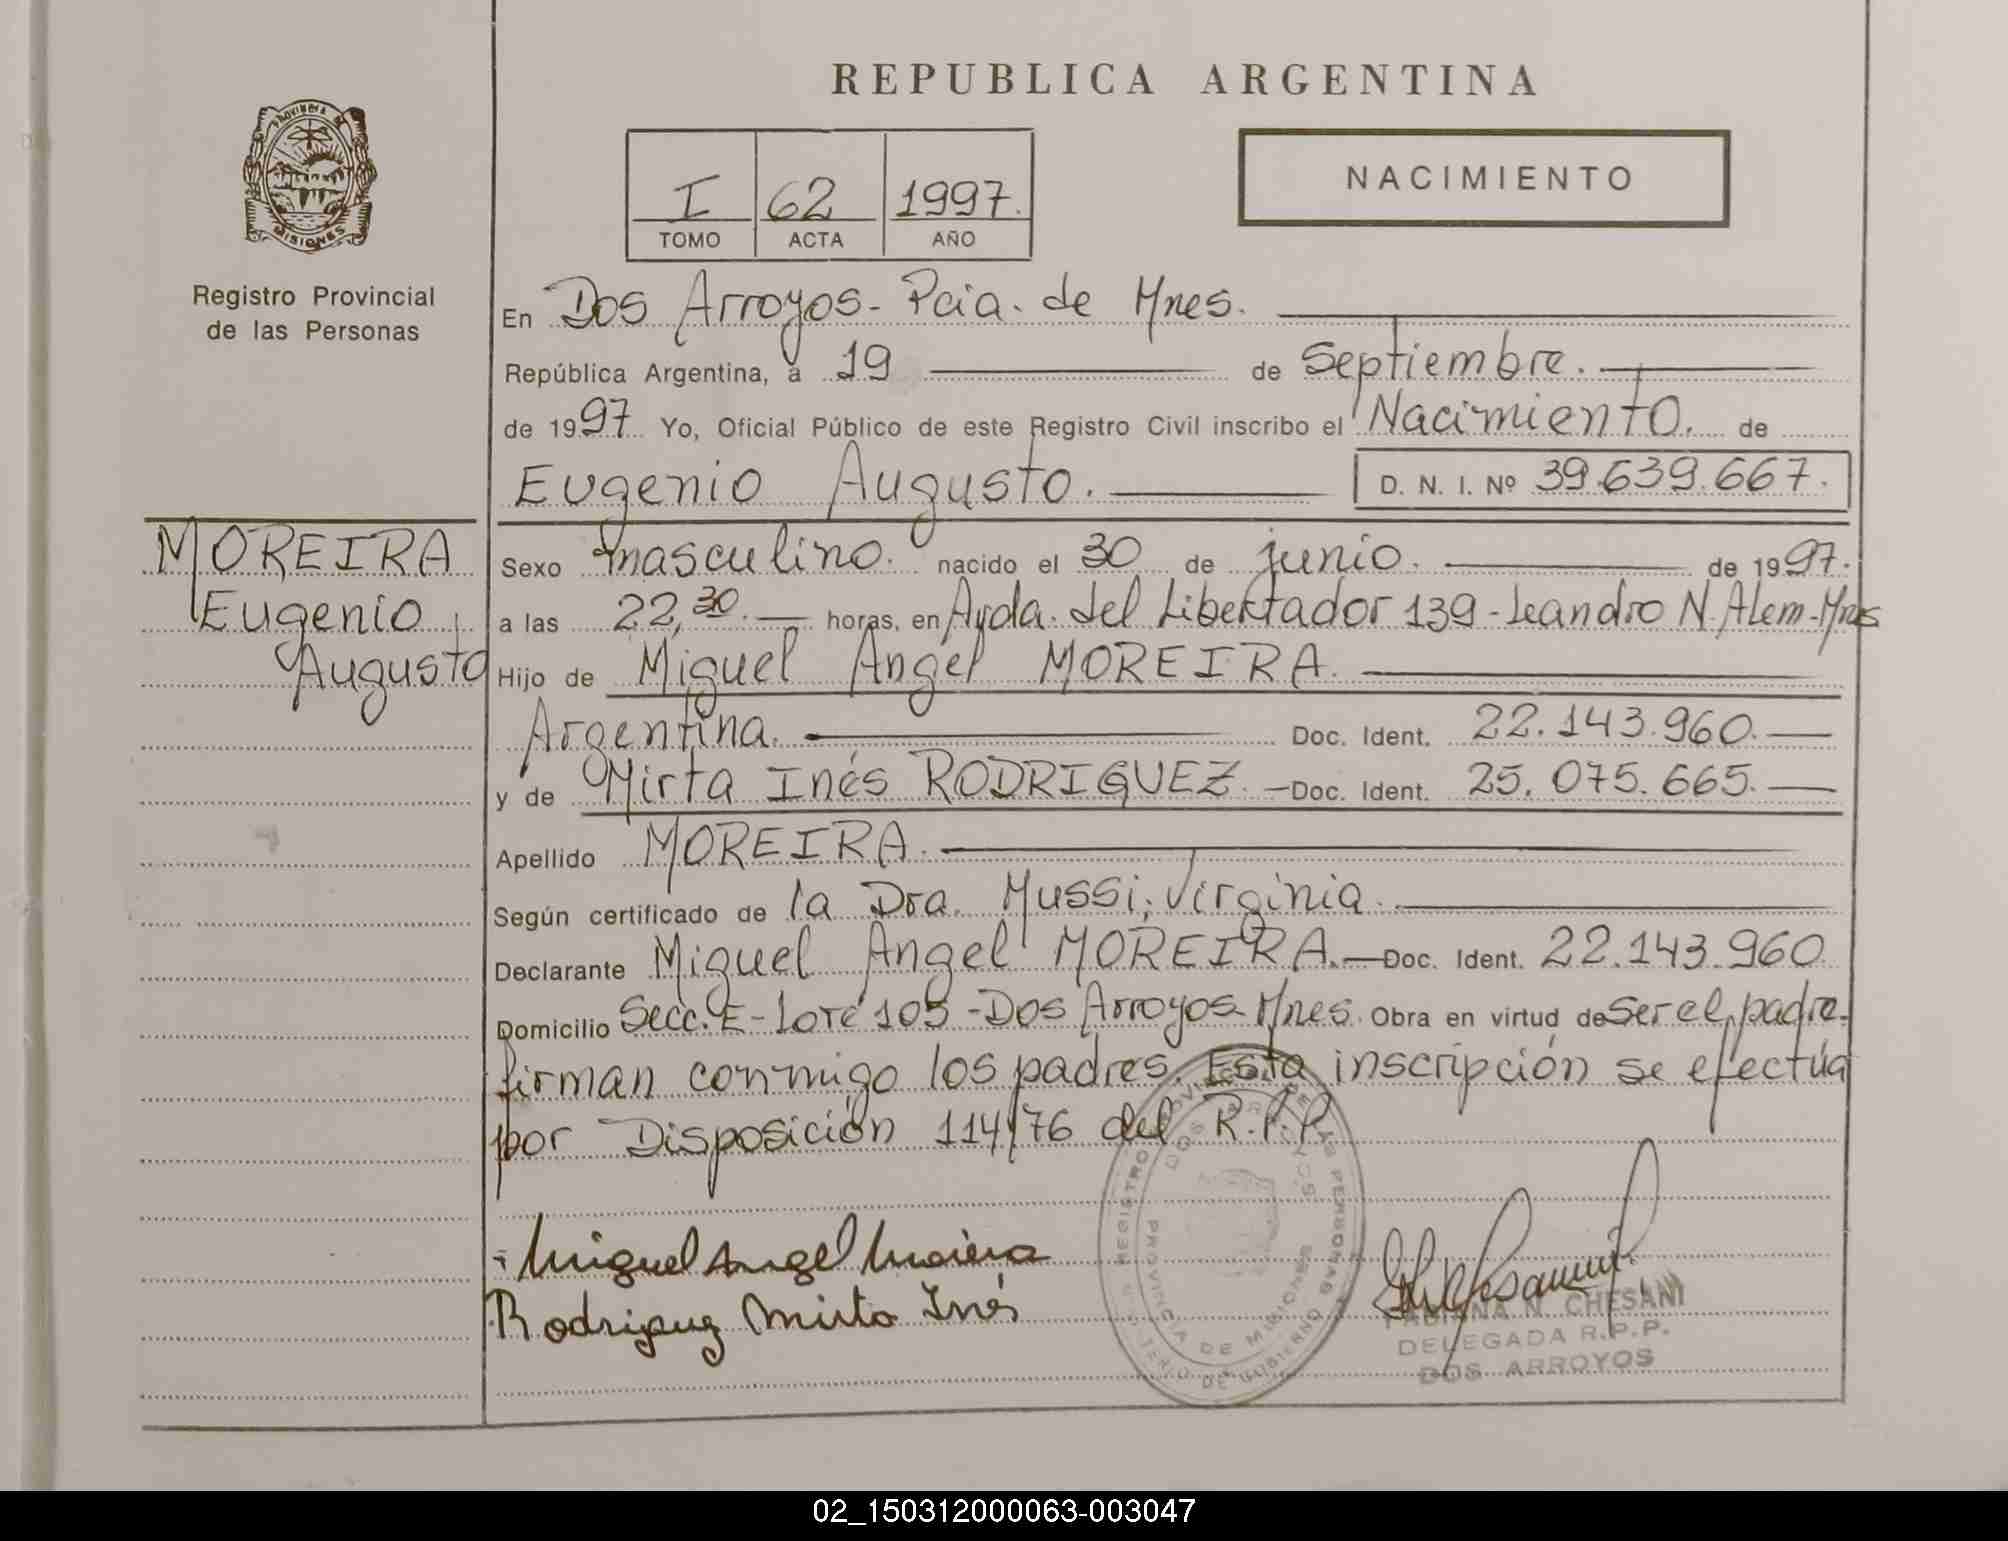 REPUBLICA ARGENTINA
PROVINCIA DE MISIONES
Registro Provincial
de las Personas
I 62 1997.
TOMO ACTA AÑO
NACIMIENTO
En Dos Arroyos - Pcia. de Mnes.
República Argentina, a 19 de Septiembre.
de 1997 Yo, Oficial Público de este Registro Civil inscribo el Nacimiento. de
Eugenio Augusto. D. N. I. Nº 39.639.667.
MOREIRA
Eugenio
Augusto
Sexo masculino. nacido el 30 de junio. de 1997.
a las 22,30. horas, en Avda. del Libertador 139 - Leandro N. Alem - Mnes
Hijo de Miguel Angel MOREIRA.
Argentina. Doc. Ident. 22.143.960.
y de Mirta Inés RODRIGUEZ. - Doc. Ident. 25.075.665.
Apellido MOREIRA.
Según certificado de la Dra. Mussi, Virginia.
Declarante Miguel Angel MOREIRA. - Doc. Ident. 22.143.960
Domicilio Secc. E - Lote 105 - Dos Arroyos - Mnes. Obra en virtud de ser el padre.
firman conmigo los padres. Esta inscripción se efectúa
por Disposición 114/76 del R.P.P.
Miguel Angel Moreira
Rodriguez Mirta Inés
REGISTRO PROVINCIAL DE LAS PERSONAS
DOS ARROYOS
PROVINCIA DE MISIONES
MINISTERIO DE GOBIERNO
FABIANA N. CHESANI
DELEGADA R.P.P.
DOS ARROYOS
02_150312000063-003047